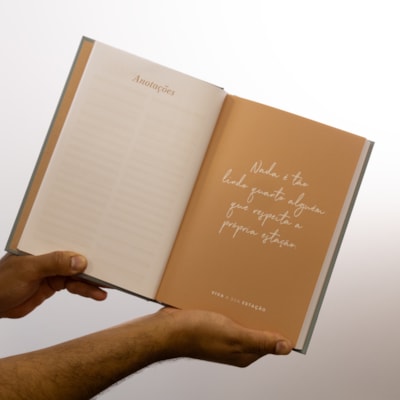 Anotações
Nada é tão
lindo quanto alguém
que respeita a
própria estação.
VIVA A SUA ESTAÇÃO